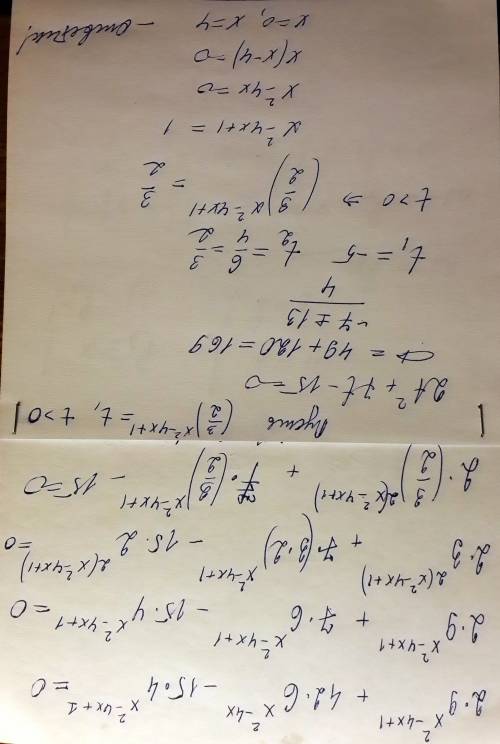 2·9^(x²-4x+1) + 42·6^(x²-4x) - 15·4^(x²-4x+1) = 0
2·9^(x²-4x+1) + 7·6^(x²-4x+1) - 15·4^(x²-4x+1) = 0
2·3^(2(x²-4x+1)) + 7·(3·2)^(x²-4x+1) - 15·2^(2(x²-4x+1)) = 0
2·(3/2)^(2(x²-4x+1)) + 7·(3/2)^(x²-4x+1) - 15 = 0
Пусть (3/2)^(x²-4x+1) = t, t>0
2t² + 7t - 15 = 0
D = 49 + 120 = 169
(-7 ± 13)/4
t₁ = -5 t₂ = 6/4 = 3/2
t>0 ⇒ (3/2)^(x²-4x+1) = 3/2
x²-4x+1 = 1
x²-4x = 0
x(x-4) = 0
x=0, x=4 - ответы!